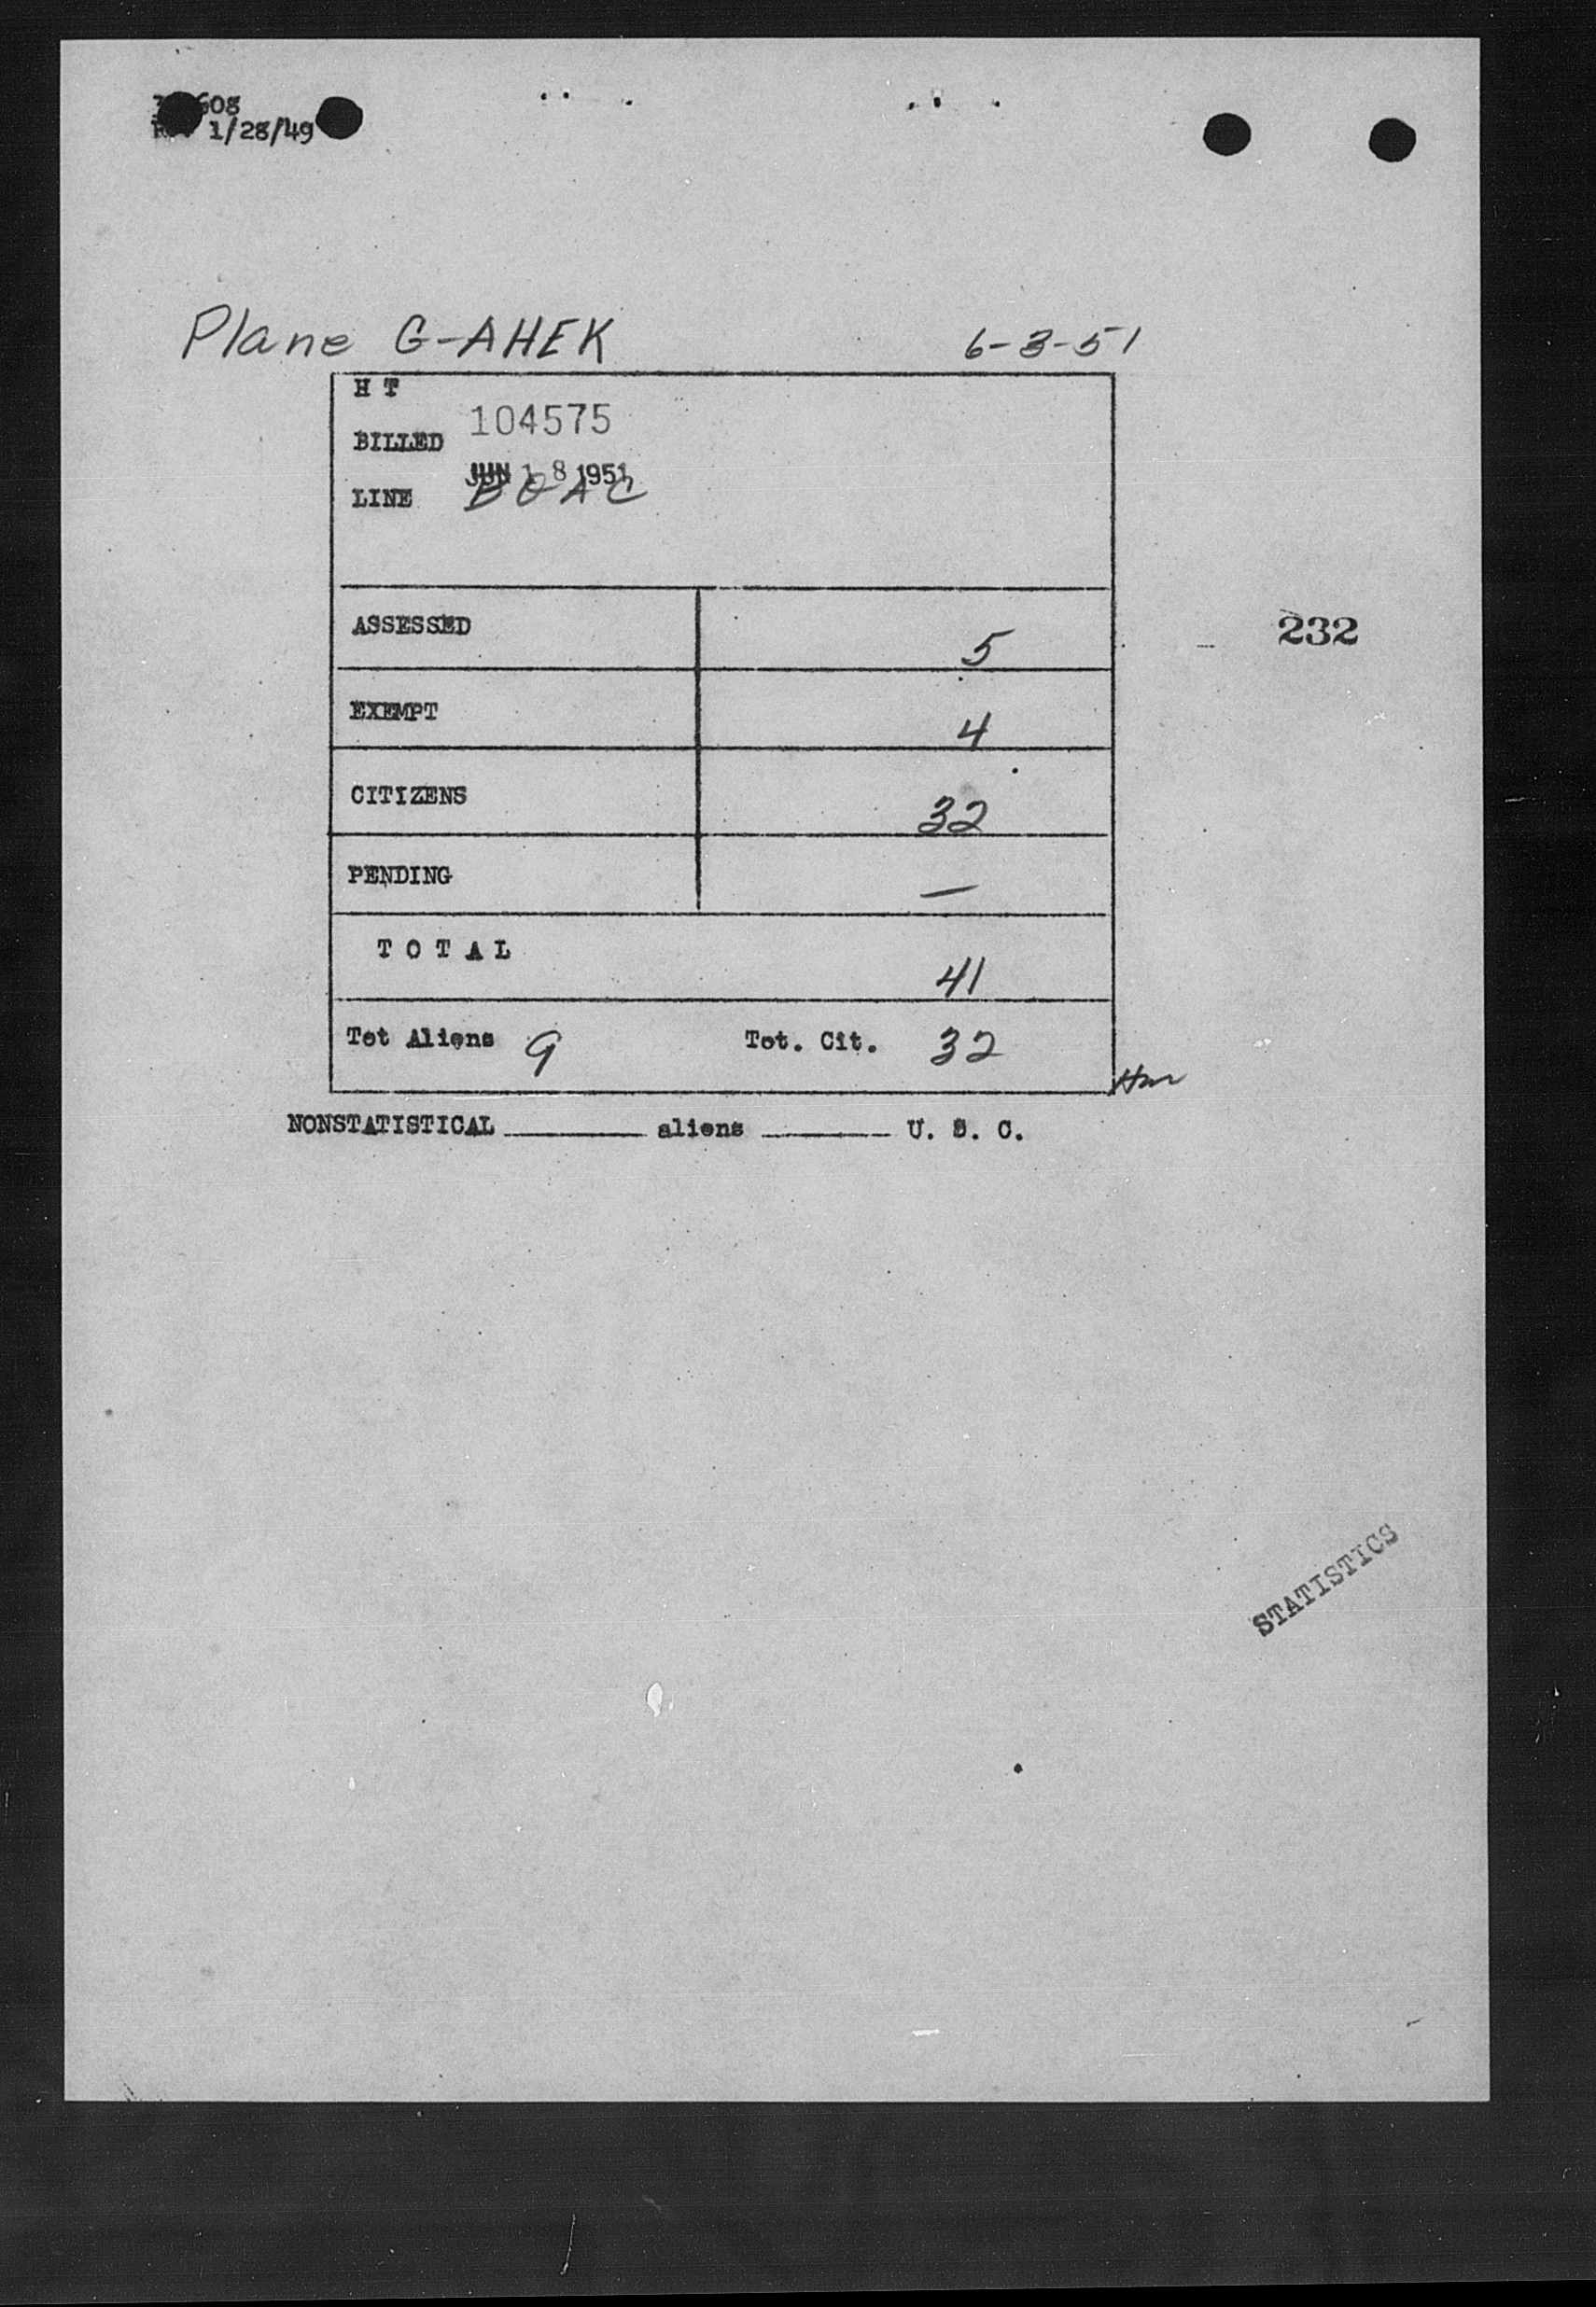 608
1/28/49
Plane G-AHEK 6-3-51
H T
104575
BILLED
JUN 18 1951
LINE BOAC
ASSESSED 5
232
EXEMPT 4
CITIZENS 32
PENDING —
T O T A L 41
Tot Aliens 9 Tot. Cit. 32
NONSTATISTICAL ______ aliens ______ U. S. C.
STATISTICS